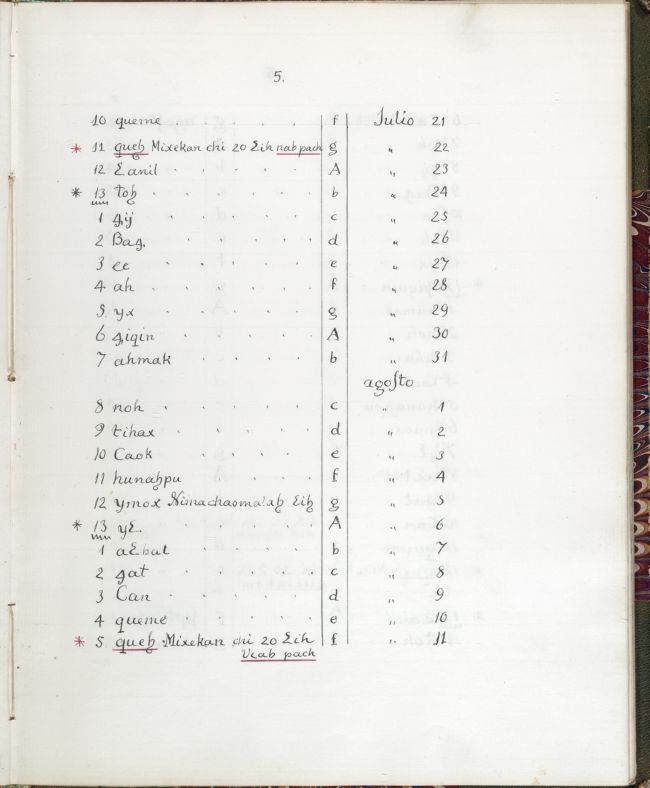 5.
10 queme . . . . . f Julio 21
* 11 queh Mixekan chi 20 Ꜫih nabpach g „ 22
12 Ꜫanil . . . . . A „ 23
* 13 toh . . . . . b „ 24
1 ꜭij . . . . . c „ 25
2 Baꜭ. . . . . . d „ 26
3 ee . . . . . e „ 27
4 ah . . . . . f „ 28
5 yx . . . . . g „ 29
6 ꜭiqin . . . . . A „ 30
7 ahmak . . . . b „ 31
agoſto
8 noh . . . . . c „ 1
9 tihax . . . . . d „ 2
10 Caok . . . . e „ 3
11 hunahpu . . . . f „ 4
12 ymox Nimachaomalah Ꜫih g „ 5
* 13 yꜪ. . . . . A „ 6
1 aꜪbal . . . . b „ 7
2 ꜭat . . . . . c „ 8
3 Can . . . . . d „ 9
4 queme . . . . e „ 10
* 5 queh Mixekan chi 20 Ꜫih f „ 11
Vcab pach